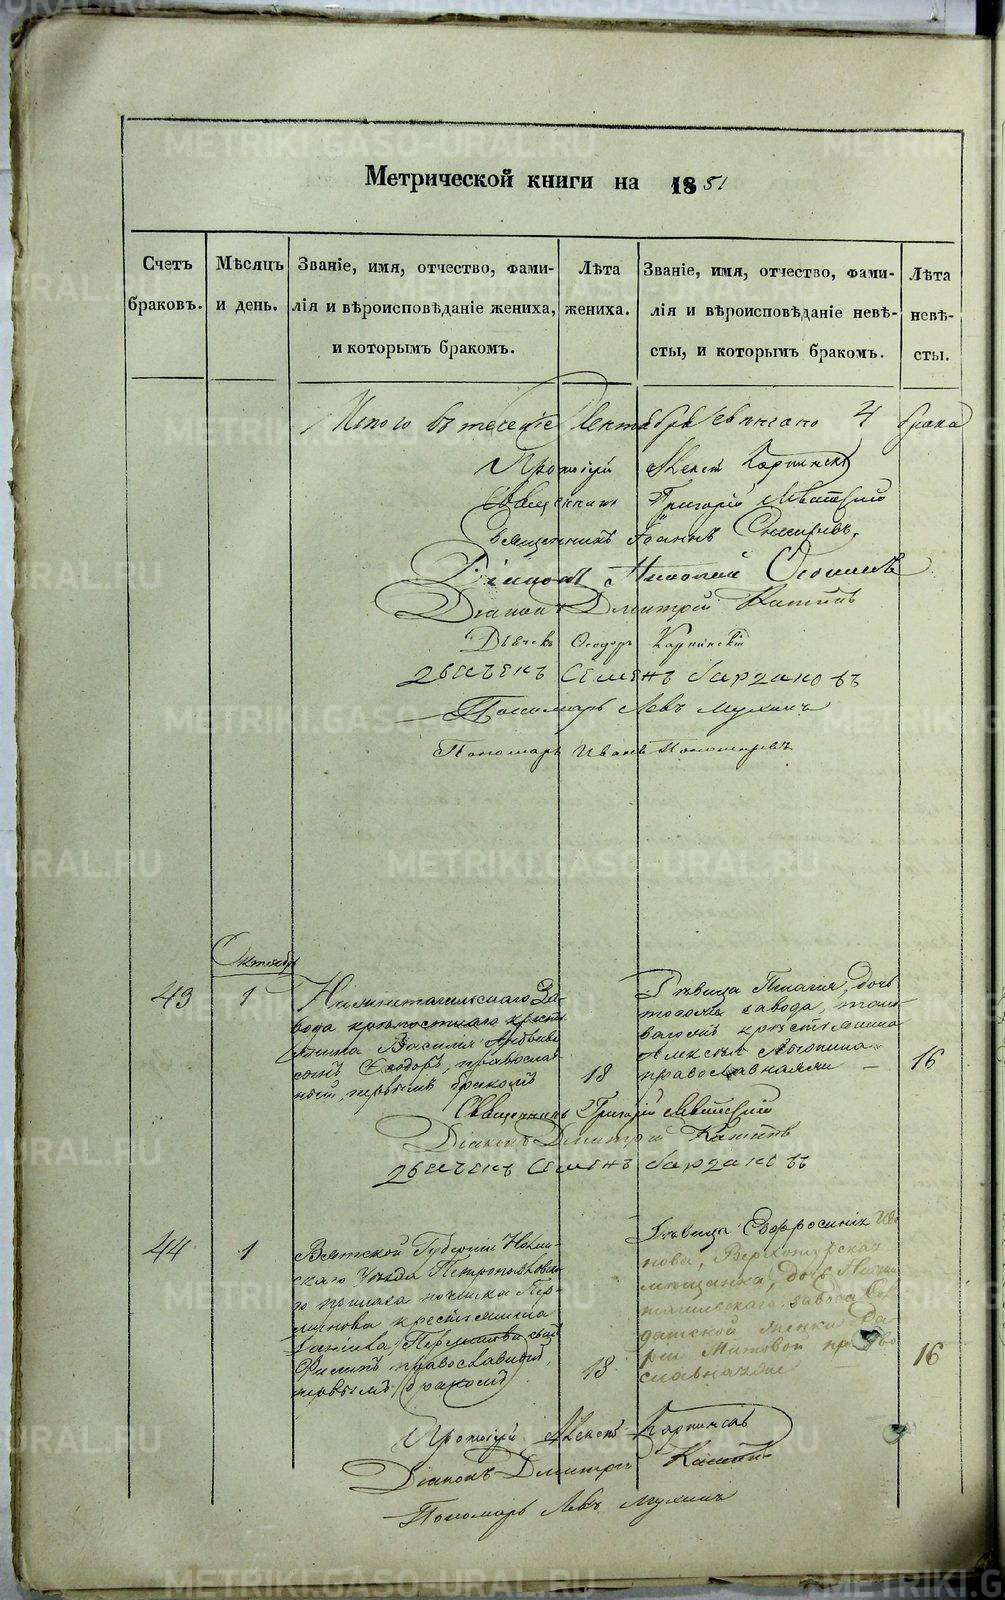 Метрической книги на 1851
Счетъ браковъ.
Мѣсяцъ и день.
Званіе, имя, отчество, фами-
лія и вѣроисповѣданіе жениха,
и которымъ бракомъ.
Лѣта жениха.
Званіе, имя, отчество, фами-
лія и вѣроисповѣданіе невѣ-
сты, и которымъ бракомъ.
Лѣта невѣ-
сты.
Итого въ теченіе Сентября Свѣнчано 4 брака
Протоіерй Алексѣй Карпинскій
Священникъ Григорій
Священникъ Іоаннъ
Діаконъ Николай
Діаконъ Дмитрій
Дьячекъ Ѳеодоръ Карпинскій
Дьячекъ Семенъ
Пономарь Левъ Мухинъ
Пономарь Иванъ Пономаревъ
Октябрь
43
1
Нижнетагильскаго За-
вода крѣпостнаго кресть-
янина Василія
сынъ Ѳеодоръ, православ-
ный, первымъ бракомъ
18
Дѣвица Пелагія, дочь
тогожъ завода,
крестьянина
Алексѣя
православная
16
Священникъ Григорій
Діаконъ Дмитрій
Дьячекъ Семенъ
44
1
Вятской Губерніи
скаго Уѣзда
го починка Пер-
минова крестьянина
Данилы Перминова сынъ
Филипъ православный,
первымъ бракомъ
18
Дѣвица Евфросинія Ива-
нова, Верхотурская
мѣщанка, дочь Нижне-
тагильскаго завода Сол-
датской женки Да-
рьи Титовой право-
славная
16
Протоіерй Алексѣй Карпинскій
Діаконъ Дмитрій
Пономарь Левъ Мухинъ
METRIKI.GASO-URAL.RU